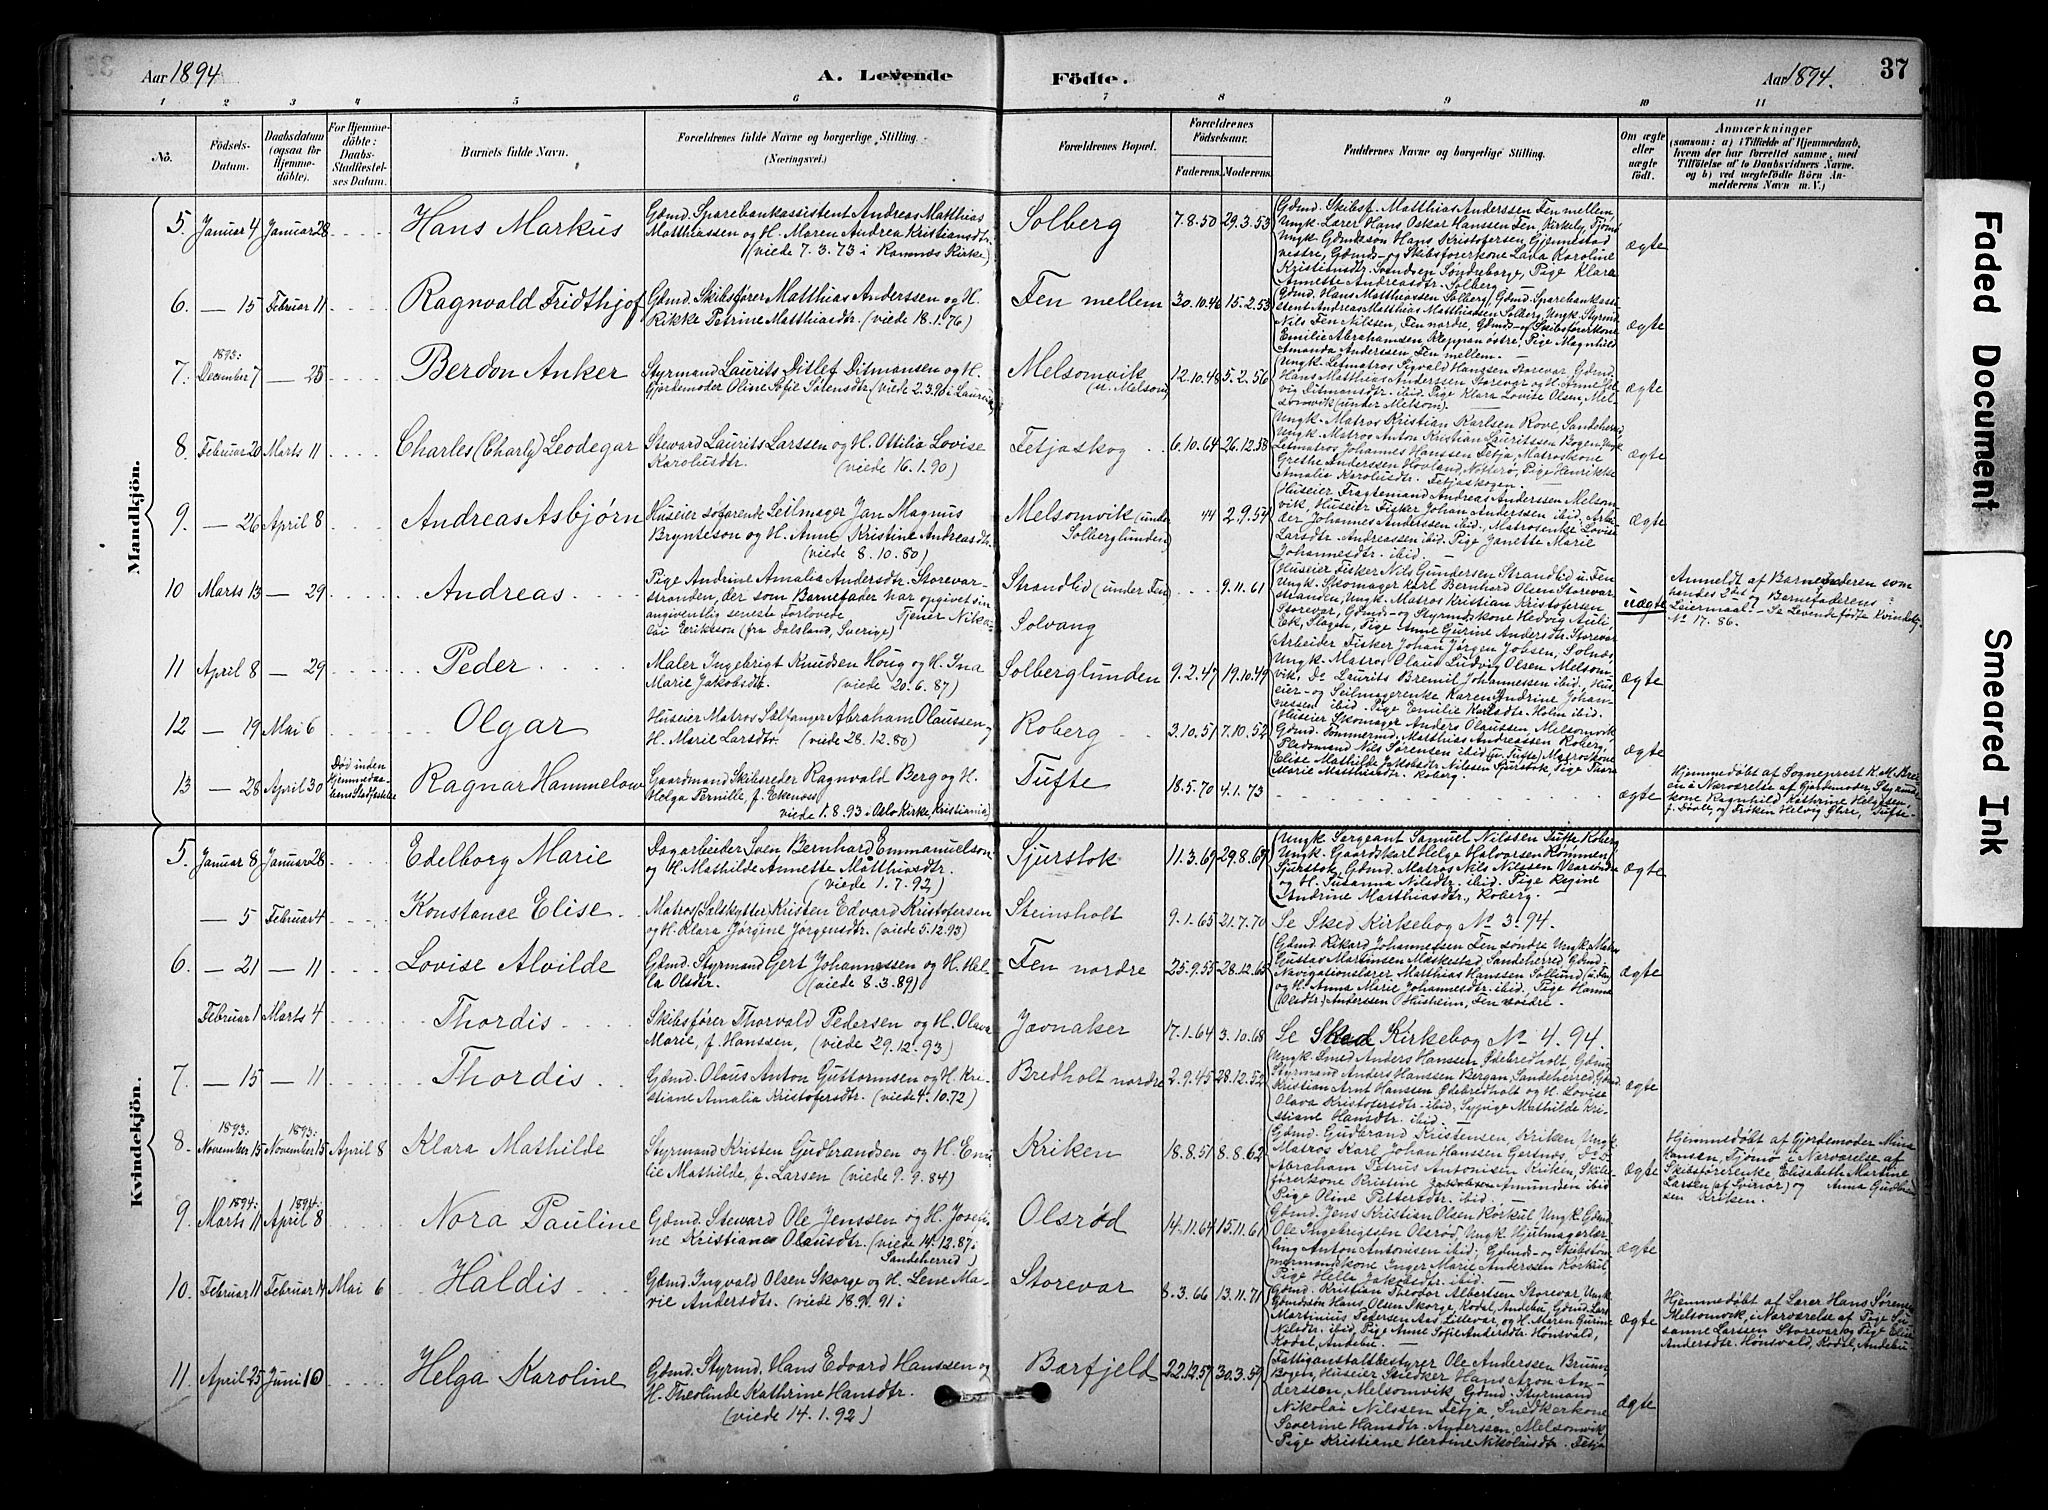 Aar 1894
A. Levende Födte.
Aar 1894.
37
1 2 3 4 5 6 7 8 9 10 11
No.
Födsels-Datum.
Daabsdatum (ogsaa för Hjemmedöbte).
For Hjemmedöbte: Daabs-Stadfæstelses Datum.
Barnets fulde Navn.
Forældrenes fulde Navne og borgerlige Stilling. (Næringsvei.)
Forældrenes Bopæl.
Forældrenes Födselsaar.
Faderens. Moderens.
Faddernes Navne og borgerlige Stilling.
Om ægte eller uægte födt.
Anmærkninger
(saasom: a) i Tilfælde af Hjemmedaab, hvem der har forrettet samme, med Tilföielse af to Daabsvidners Navne, og b) ved uægtefödte Börn Anmelderens Navn m. V.)
Mandkjön.
5. Januar 4 Januar 28 Hans Markus
Gdmd. Sparebankassistent Andreas Matthias
Matthiassen og H. Maren Andrea Kristiansdtr.
(viede 7.3.73 i Ramnæs Kirke)
Solberg 7.8.50 29.3.53
Gdmd. Skibsf. Matthias Anderssen Fen mellem,
Ungk. Lærer Hans Oskar Hanssen Fen, Kirkely, Tjømø
Ungk. Gdmdssøn Hans Kristofersen, Gjennestad
vestre, Gdmds- og Skibsførerkone Lava Karoline
Kristiansdtr. Svendsen Søndreborge, Pige Klara
Annette Andreasdtr. Solberg.
ægte
6. — 15 Februar 11 Ragnvald Fridthjof
Gdmd. Skibsfører Matthias Anderssen og H.
Rikke Petrine Matthiasdtr. (viede 18.1.76)
Fen mellem 30.10.46 15.2.53
Gdmd. Hans Matthiassen Solberg, Gdmd. Sparebankassi-
stent Andreas Matthias Matthiassen Solberg, Ungk. Styrmd.
Nils Fen Nilssen, Fen nordre, Gdmds- og Skibsførerkone
Emilie Abrahamsen, Kleppan østre, Pige Magnhild
Amanda Anderssen Fen mellem.
ægte
7. 1893: December 7 — 25 Berdon Anker
Styrmand Laurits Ditlef Ditmansen og H.
Gjordemoder Oline Sofie Sørensdtr. (viede 2.3.76 i
Melsomvik (u. Melsom) 12.10.48 5.2.56
Ungk. Letmatros Sigvald Hanssen Storevar, Gdmd.
Hans Matthias Anderssen, Storevar og H. Anne Hel-
vig Ditmansdtr. ibid. Pige Klara Lovise Olsen, Mel-
somvik (under Melsom).
ægte
8. Februar 20 Marts 11 Charles (Charly) Leodegar
Steward Laurits Larssen og H. Ottilia Lovise
Karolusdtr. (viede 16.1.90)
Fetjaskog 6.10.64 26.12.58
Ungk. Matros Kristian Karlsen Rove Sandeherred,
Ungk. Matros Anton Kristian Lauritssen Bogen, Ungk.
Letmatros Johannes Hanssen Fetja, Matroskone
Grethe Anderssen Hovland, Nøtterø, Pige Henrikke
Amalia Karolusdtr. Fetjaskogen.
ægte
9. — 26 April 8 Andreas Asbjørn
Huseier søfarende Seilmager Jan Magnus
Bryntelson og H. Anne Kristine Andreasdtr.
(viede 8.10.80)
Melsomvik (under Solberglunden) 44 2.9.54
Huseier Fragtemand Andreas Anderssen Melsom-
vik, Huseier Fisker Johan Anderssen ibid. Arbei-
der Johannes Anderssen ibid. Matrosenke Lovise
Larsdtr. Andreassen ibid. Pige Janette Marie
Johannesdtr. ibid.
ægte
10 Marts 13 — 29 Andreas
Pige Andrine Amalia Andersdtr. Storevar-
stranden, der som Barnefader har opgivet sin
angiventlig seneste Forlovede Tjener Niko-
lai Eriksson (fra Dalsland, Sverige)
Strandlid (under Fen) 9.11.61
Solvang
Huseier Fisker Nils Gundersen Strandlid u. Fen
Ungk. Skomager Karl Bernhard Olsen Storevar-
stranden, Ungk. Matros Kristian Kristofersen
Storevar, Gdmd- og Styrmdskone Hedvig Juli
Ek, Slagen, Pige Anne Gurine Andersdtr. Storevar
uægte
Anmeldt af Barnemoderen som
hendes 2det og Barnefaderens ?
Leiermaal. - Se Levendefødte Kvindekj.
No 17. 86.
11 April 8 — 29 Peder
Maler Ingebrigt Knudsen Houg og H. Ina
Marie Jakobsdtr. (viede 20.6.87)
Solberglunden 9.2.47 19.10.49
Arbeider Fisker Johan Jørgen Jobsen, Solnæs,
Ungk. Matros Olaus Ludvig Olsen Melsom-
vik, Do Laurits Bremil Johannessen ibid, Hus-
eier- og Seilmagerenke Karen Andrine Johan-
nessen ibid. Pige Emilie Karlsdtr. Holm ibid.
ægte
12 — 19 Mai 6 Olgar
Huseier Matros Sælfanger Abraham Olaussen og
H. Marie Larsdtr. (viede 28.12.80)
Roberg 3.10.51 7.10.52
Huseier Skomager Anders Olaussen Melsomvik
Gdmd. Tømmermd. Matthias Andreassen Roberg,
Pladsmand Nils Sørensen ibid (u. Tufte) Matroskone
Elise Mathilde Jakobsdtr. Nilsen Sjurstok, Pige Thora
Marie Matthiasdtr. Roberg.
ægte
13 — 28 April 30 Død inden Hjemmedaabens Stadfæstelse Ragnar Hammelow
Gaardmand Skibsreder Ragnvald Berg og H.
Helga Pernille, f. Ekenæss
viede 1.8.93 Oslo Kirke, Kristiania)
Tufte 18.5.70 4.1.73
ægte
Hjemmedøbt af Sogneprest K. M. Brei-
en i Nærværelse af Gjordemoder, Styrmds-
kone Ragnhild Kathrine Helgesen,
f. Døvle, og Frøken Helvig Øhre, Tufte
Kvindekjön.
5. Januar 8 Januar 28 Edelborg Marie
Dagarbeider Sven Bernhard Emmanuelson
og H. Mathilde Annette Matthiasdtr.
(viede 1.7.92)
Sjurstok 11.3.67 29.8.67
Ungk. Sergeant Samuel Nilssen Tufte Roberg
Ungk. Gaardskarl Helge Halvorsen Rømmen,
Sjurstok, Gdmd. Matros Nils Nilssen Vearsøndre
og H. Susanna Nilsdtr. ibid. Pige Regine
Andrine Marthiasdtr., Roberg.
ægte
— 5 Februar 4 Konstance Elise
Matros (Sælskytter) Kristen Edvard Kristofersen
og H. Klara Jørgine Jørgensdtr. (viede 5.12.93)
Steinsholt 9.1.65 21.7.70
Se Sked Kirkebog No 3. 94.
6. — 21 — 11 Lovise Alvilde
Gdmd. Styrmand Gert Johannessen og H. Hel-
la Olsdtr. (viede 8.3.89)
Fen nordre 25.9.55 28.12.65
Gdmd. Rikard Johannessen Fen søndre Ungk. Matros
Gustav Martinsen Mæskestad, Sandeherred, Gdmd.
Navigationslærer Matthias Hanssen Sollund (u. Fen)
og H. Anna Marie Johannesdtr. ibid. Pige Hanna
(Olsdtr.) Anderssen Husheim, Fen nordre.
ægte
Februar 1 Marts 4 Thordis
Skibsfører Thorvald Pedersen og H. Olava
Marie, f. Hanssen, (viede 29.12.93)
Jovnaker 17.1.64 3.10.68
Se Sked Kirkebog No 4. 94.
7. — 15 — 11 Thordis
Gdmd. Olaus Anton Guttormsen og H. Kri-
stiane Amalia Kristofersdtr. (viede 4.10.72)
Bredholt nordre 2.9.45 28.12.52
Ungk. Smed Anders Hanssen Ødebredholt, Gdmd.
Styrmand Anders Hanssen Bergan, Sandeherred, Gdmd.
Kristian Arnt Hanssen Ødebredholt og H. Lovise
Olava Kristofersdtr. ibid, Sypige Mathilde Kri-
stiane Hansdtr. ibid.
ægte
8. 1893: November 15 1893: November 15 April 8 Klara Mathilde
Styrmand Kristen Gudbrandsen og H. Emi-
lie Mathilde, f. Larsen (viede 9.9.84)
Kriken 18.8.51 8.8.62
Gdmd. Gudbrand Kristensen, Kriken, Ungk.
Matros Karl Johan Hanssen Gertsnes, Do Do
Abraham Petrus Antonisen Kriken, Skibs-
førerkone Kristine Jakobsen Amunden ibid
Pige Oline Pettersdtr. ibid.
ægte
Hjemmedøbt af Gjordemoder Mina
Hansen, Tjømø i Nærværelse af
Skibsførerenke, Elisabeth Martine
Larsen (af Svinør) og Anna Gudbrand-
sen Kriken.
9. 1894: Marts 11 1894: April 8 Nora Pauline
Gdmd. Steward Ole Jenssen og H. Josefi-
ne Kristiane Olausdtr. (viede 14.12.87 i
Sandeherred)
Olsrød 14.11.64 15.11.61
Gdmd. Jens Kristian Olsen Korkul, Ungk. Gdmd.
Ole Ingebrigtsen Olsrød, Ungk. Hjulmagerlær-
ling Anton Antonisen ibid; Gdmds- og Skibstøm-
mermandskone Inger Marie Anderssen Korkul,
Pige Helle Jakobsdtr. ibid.
ægte
10. Februar 11 Februar 14 Mai 6 Haldis
Gdmd. Ingvald Olsen Skorge og H. Lene Ma-
rie Andersdtr. (viede 18.9.91 i
Storevar 8.3.66 13.11.71
Gdmd. Kristian Theodor Albertsen Storevar, Ungk.
Gdmdssøn Hans Olsen Skorge, Kodal, Andebu, Gdmd. Lars
Martinius Pedersen Aas Lillevar, og H. Maren Gurine
Nilsdtr. ibid, Pige Anne Sofie Andersdtr. Hønsvald,
Kodal, Andebu.
ægte
Hjemmedøbt af Lærer Hans Sørensen
Melsomvik, i Nærværelse af Pige Su-
sanne Larssen Storevar og Pige Elise
Andersdtr. Hønsvald, Kodal, Andebu
11. April 25 Juni 10 Helga Karoline
Gdmd. Styrmd. Hans Edvard Hanssen og
H. Theolinde Kathrine Hansdtr.
(viede 14.1.92)
Barfjeld 22.12.57 30.3.59
Fattiganstaltbestyrer Ole Anderssen Bruun,
Bogen, Huseier Snedker Hans Aron An-
derssen, Melsomvik, Gdmd. Styrmand
Nikolai Nilssen Fetja, Snedkerkone
Severine Hansdtr. Anderssen, Melsomvik,
Pige Kristiane Herdine Nikolaisdtr. Fetja
ægte
Faded Document
Smeared Ink